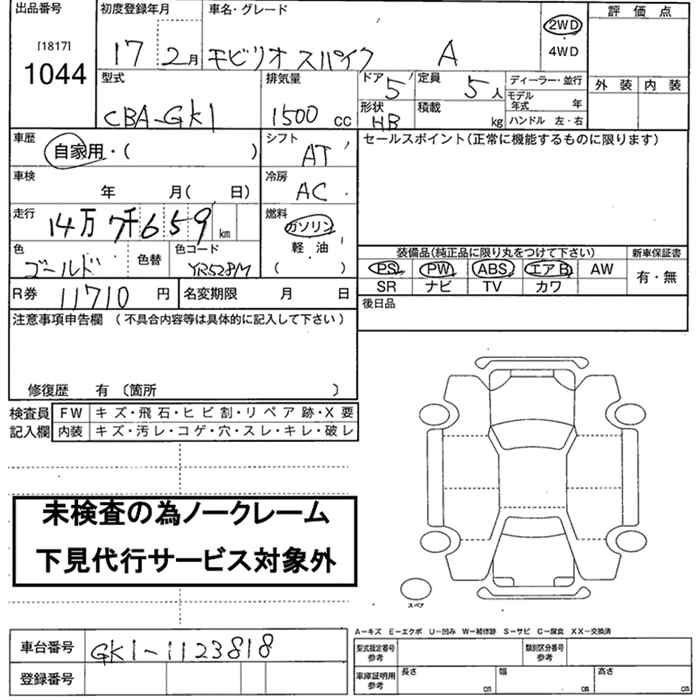 出品番号 初度登録年月 車名・グレード 評価点
[1817]
1044 17 2月 モビリオスパイク A 2WD 4WD
型式 排気量 ドア 5 定員 5人 ディーラー・並行 外装 内装
CBA-GK1 1500cc 形状 HB 積載 kg モデル年式 年
ハンドル 左・右
車歴 自家用・( ) シフト AT セールスポイント(正常に機能するものに限ります)
車検 年 月( 日) 冷房 AC
走行 14万7千659km 燃料 ガソリン 軽油 ( )
色 ゴールド 色替 色コード YR528M 装備品(純正品に限り丸をつけて下さい) 新車保証書
PS PW ABS エアB AW 有・無
SR ナビ TV カワ
R券 11710円 名変期限 月 日 後日品
注意事項申告欄 (不具合内容等は具体的に記入して下さい)
修復歴 有 〔箇所 〕
検査員 FW キズ・飛石・ヒビ割・リペア跡・X要
記入欄 内装 キズ・汚レ・コゲ・穴・スレ・キレ・破レ
未検査の為ノークレーム
下見代行サービス対象外
スペア
A-キズ E-エクボ U-凹み W-補修跡 S-サビ C-腐食 XX-交換済
車台番号 GK1-1123818 型式指定番号 参考 類別区分番号 参考
登録番号 車庫証明用 参考 長さ cm 幅 cm 高さ cm